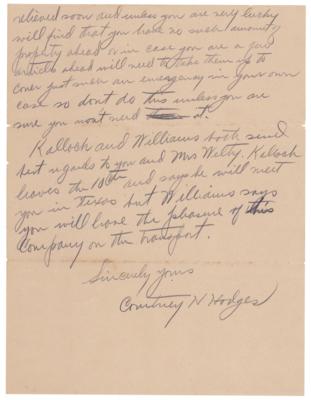 relieved soon and unless you are very lucky
will find that you have no such amount of
property ahead or in case you are a few
articles ahead will need to take them up to
cover just such an emergency in your own
case so dont do this unless you are
sure you wont need it.
Kalloch and Williams both send
best regards to you and Mrs Welty. Kalloch
leaves the 10th and says he will meet
you in Texas but Williams says
you will have the pleasure of his
company on the transport.
Sincerely yours
Courtney H Hodges